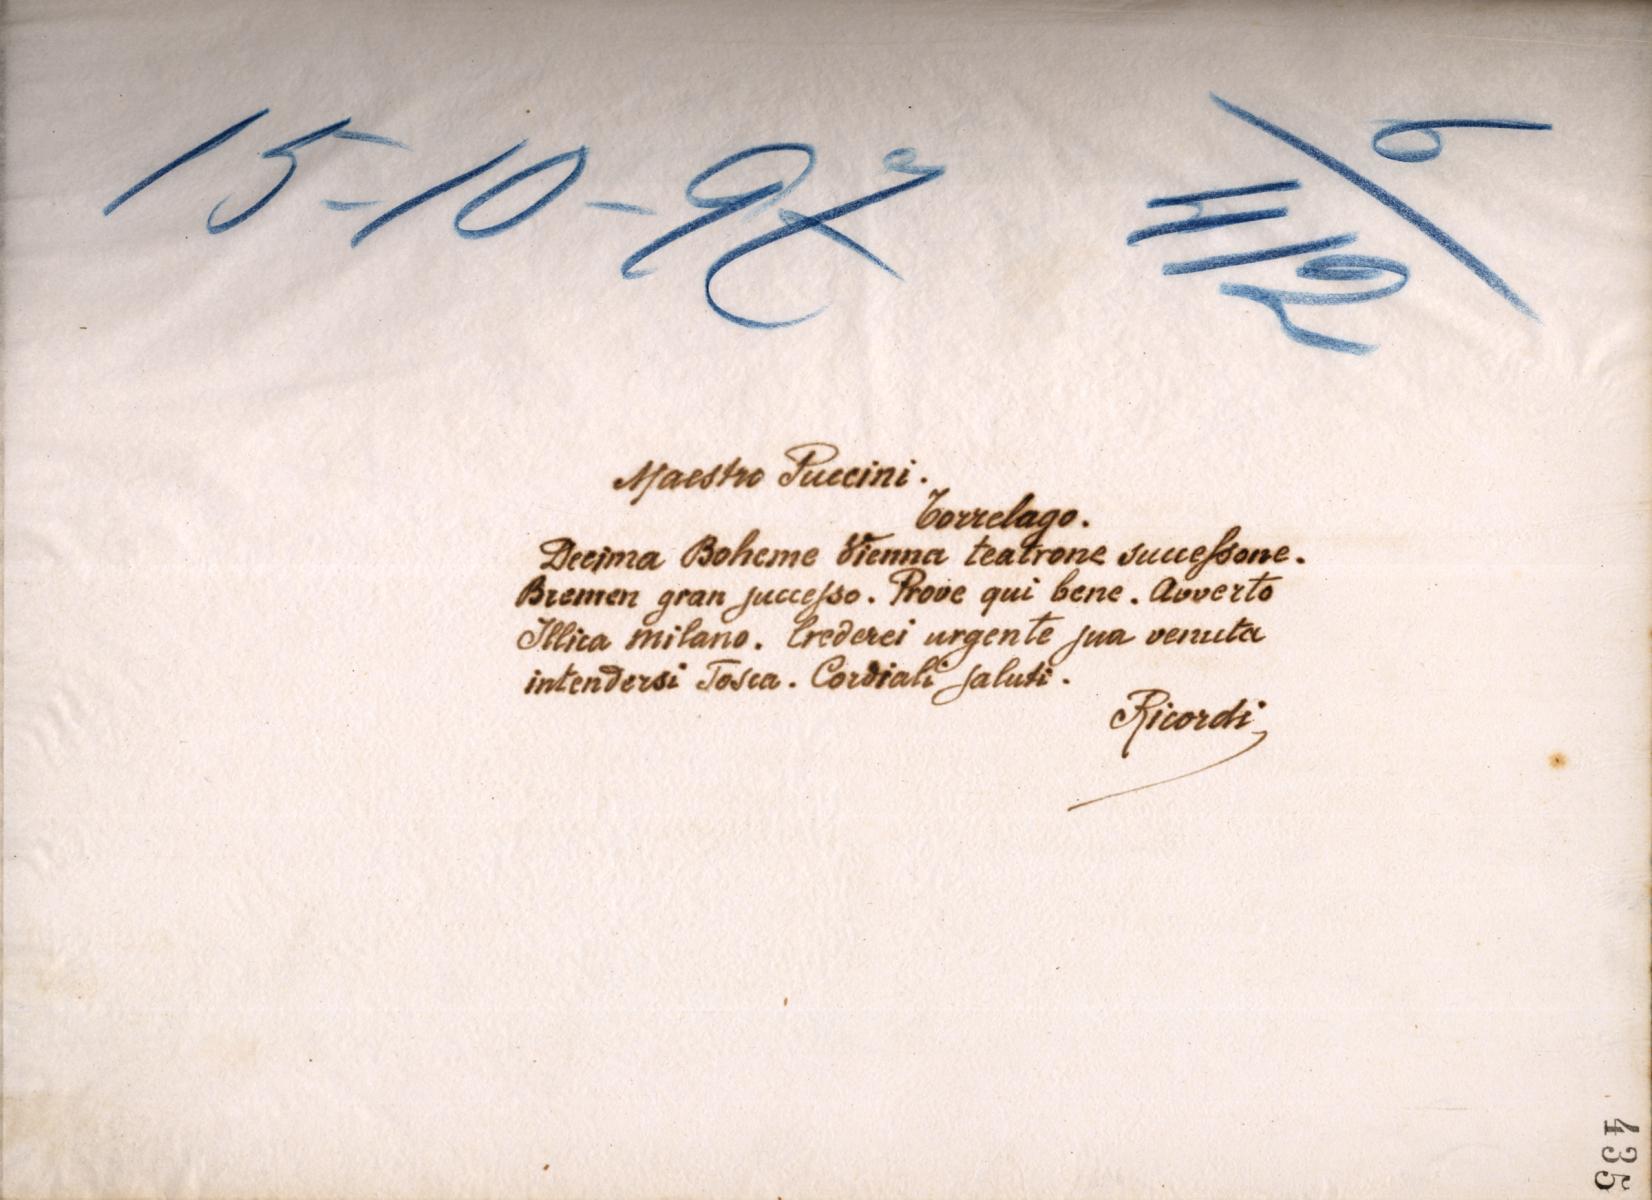 15-10-97
Maestro Puccini.
Torrelago.
Decima Boheme Vienna teatrone successone.
Bremen gran successo. Prove qui bene. Avverto
Illica Milano. Crederei urgente sua venuta
intendersi Tosca. Cordiali saluti.
Ricordi
435